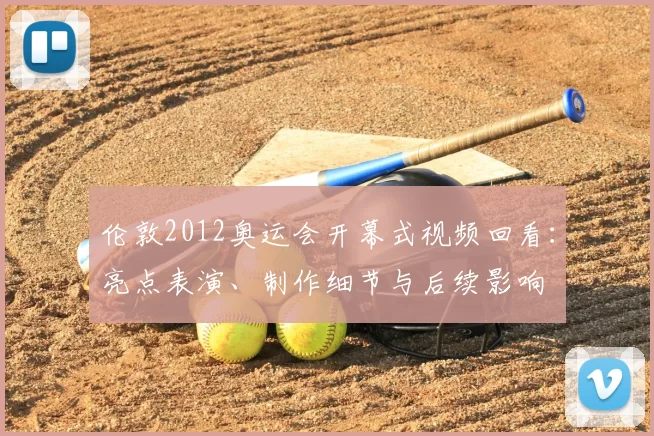 伦敦2012奥运会开幕式视频回看：
亮点表演、制作细节与后续影响